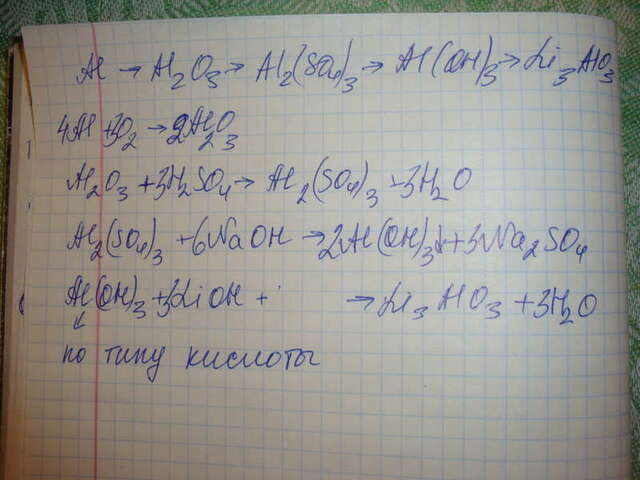 Al → Al2O3 → Al2(SO4)3 → Al(OH)3 → Li3AlO3
4Al + 3O2 → 2Al2O3
Al2O3 + 3H2SO4 → Al2(SO4)3 + 3H2O
Al2(SO4)3 + 6NaOH → 2Al(OH)3↓ + 3Na2SO4
Al(OH)3 + 3LiOH + → Li3AlO3 + 3H2O
↙
по типу кислоты